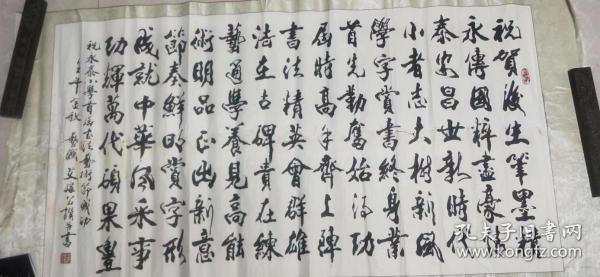 祝賀後生筆墨
永傳國粹盡豪
泰安昌世新時代
小者志大樹新風
學字賞書終身業
首先勤奮始得功
屆時高手齊上陣
書法精英會群雄
法在古碑貴在練
藝通學養見高能
術明品正出新意
節奏鮮明賞字形
成就中華風采事
功輝萬代碩果豐
祝永泰小學首屆書法藝術節成功
孔夫子旧书网